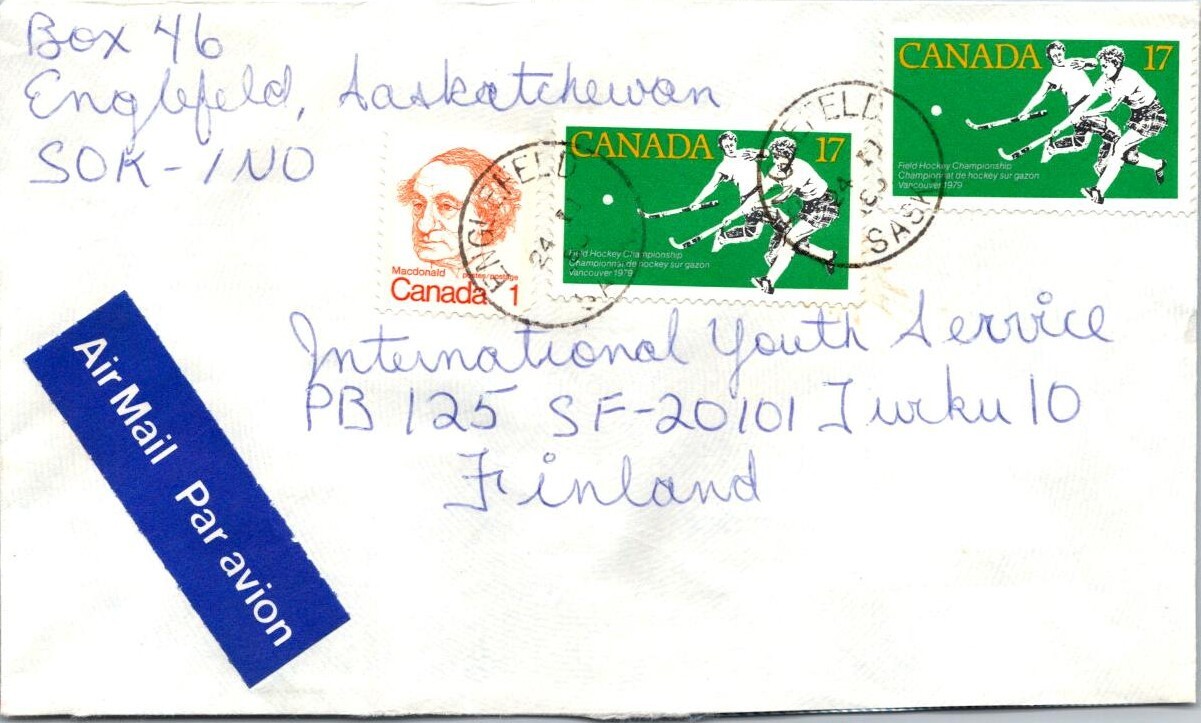 Box 46
Englefeld, Saskatchewan
S0K-1N0
CANADA 17
Field Hockey Championship
Championnat de hockey sur gazon
Vancouver 1979
CANADA 17
Field Hockey Championship
Championnat de hockey sur gazon
Vancouver 1979
Macdonald postes/postage
Canada 1
ENGLEFELD
24
SASK
24
SASK
International Youth Service
PB 125 SF-20101 Turku 10
Finland
Air Mail Par avion